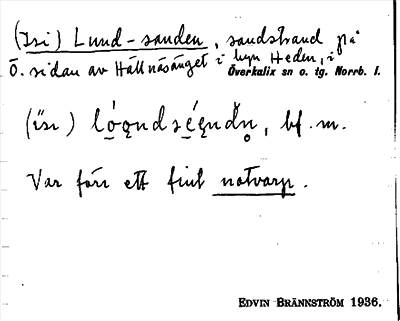 (Isi) Lund-sanden, sandstrand på
Ö. sidan av Hällnäsänget i byn Heden, i
Överkalix sn o. tg. Norrb. l.
bf. m.
Var förr ett fint notvarp.
EDVIN BRÄNNSTRÖM 1936.